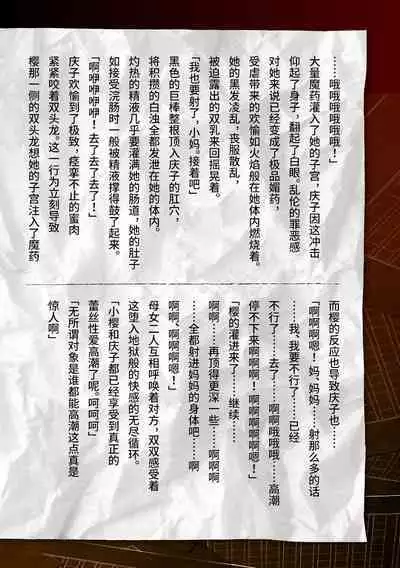 ……哦哦哦哦哦哦！」
大量魔药灌入了她的子宫，庆子因这冲击
仰起了身子，翻起了白眼。乱伦的罪恶感
对她来说已经变成了极品媚药，
受虐带来的欢愉如火焰般在她体内燃烧着。
她的黑发凌乱，丧服散乱，
被迫露出的双乳来回摇晃着。
「我也要射了，小妈。接着吧」
黑色的巨棒整根顶入庆子的肛穴，
将积攒的白浊全都发泄在她的体内。
灼热的精液几乎要灌满她的肠道，她的肚子
如接受浣肠时一般被精液撑得鼓了起来。
「啊咿咿咿咿！去了去了去了！」
庆子欢愉到了极致，痉挛不止的蜜肉
紧紧咬着双头龙。这一行为立刻导致
樱那一侧的双头龙想她的子宫注入了魔药
而樱的反应也导致庆子也……
「啊啊啊嗯！妈，妈妈……射那么多的话
……我、我要不行了……已经
不行了……去了……啊啊哦哦哦……高潮
停不下来啊啊啊！啊啊啊啊啊嗯！」
「樱的灌进来了……继续……
啊……再顶得更深一些……啊啊啊
……全都射进妈妈的身体吧……啊
啊啊、啊啊啊嗯！」
母女二人互相呼唤着对方，双双感受着
这堕入地狱般的快感的无尽循环。
「小樱和庆子都已经享受到真正的
蕾丝性爱高潮了呢。呵呵呵」
「无所谓对象是谁都能高潮这点真是
惊人啊」